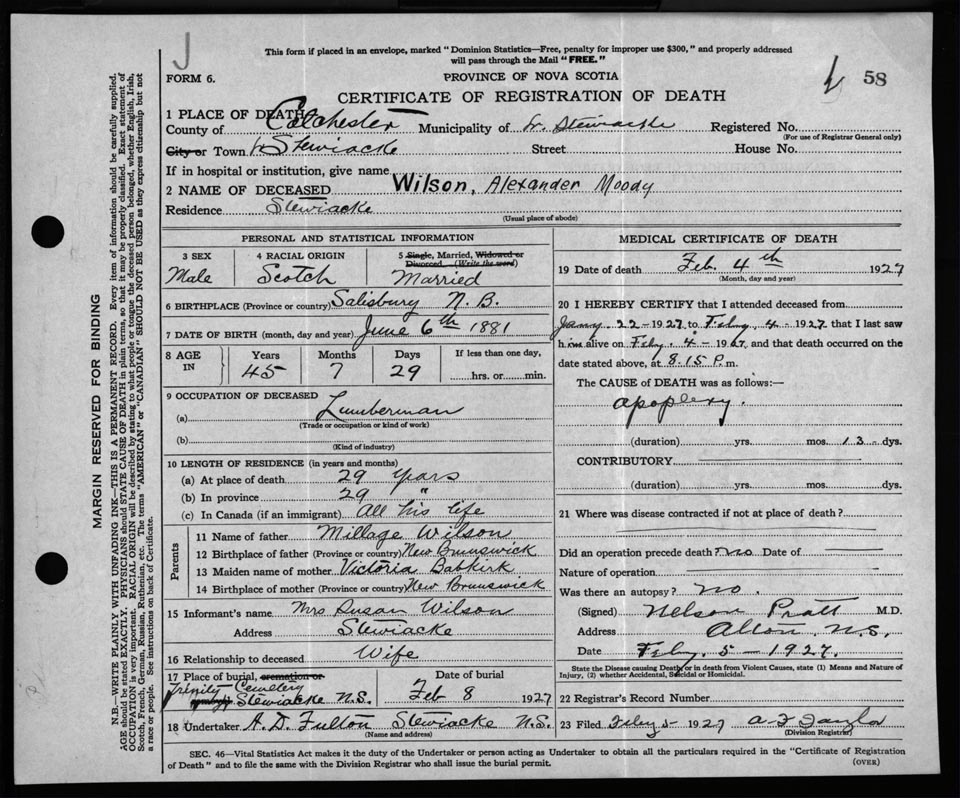 J
This form if placed in an envelope, marked "Dominion Statistics—Free, penalty for improper use $300," and properly addressed
will pass through the Mail "FREE."
FORM 6.
PROVINCE OF NOVA SCOTIA
58
CERTIFICATE OF REGISTRATION OF DEATH
1 PLACE OF DEATH
County of Colchester Municipality of Stewiacke Registered No.
(For use of Registrar General only)
City or Town Stewiacke Street House No.
If in hospital or institution, give name
2 NAME OF DECEASED Wilson, Alexander Moody
Residence Stewiacke
(Usual place of abode)
PERSONAL AND STATISTICAL INFORMATION
3 SEX
Male
4 RACIAL ORIGIN
Scotch
5 Single, Married, Widowed or
Divorced, (Write the word)
Married
6 BIRTHPLACE (Province or country) Salisbury N. B.
7 DATE OF BIRTH (month, day and year) June 6th 1881
8 AGE
IN
Years Months Days If less than one day,
45 7 29 hrs. or min.
9 OCCUPATION OF DECEASED
(a) Lumberman
(Trade or occupation or kind of work)
(b)
(Kind of industry)
10 LENGTH OF RESIDENCE (in years and months)
(a) At place of death 29 years
(b) In province 29 "
(c) In Canada (if an immigrant) All his life
Parents
11 Name of father Millage Wilson
12 Birthplace of father (Province or country) New Brunswick
13 Maiden name of mother Victoria Babkirk
14 Birthplace of mother (Province or country) New Brunswick
15 Informant's name Mrs Susan Wilson
Address Stewiacke
16 Relationship to deceased Wife
17 Place of burial, cremation or Date of burial
Trinity Cemetery
Stewiacke N.S. Feb 8 1927
18 Undertaker A. D. Fulton Stewiacke N.S.
(Name and address)
MEDICAL CERTIFICATE OF DEATH
19 Date of death Feb. 4th 1927
(Month, day and year)
20 I HEREBY CERTIFY that I attended deceased from
Jany 22 - 1927 to Feby. 4 - 1927 that I last saw
him alive on Feby. 4 - 1927 and that death occurred on the
date stated above, at 8.15 P.m.
The CAUSE OF DEATH was as follows:—
apoplexy.
(duration) yrs. mos. 13 dys.
CONTRIBUTORY
(duration) yrs. mos. dys.
21 Where was disease contracted if not at place of death?
Did an operation precede death? no Date of
Nature of operation
Was there an autopsy? no.
(Signed) Nelson Pratt M.D.
Address Alton, N.S.
Date Feby. 5 - 1927.
State the Disease causing Death, or in death from Violent Causes, state (1) Means and Nature of
Injury, (2) whether Accidental, Suicidal or Homicidal.
22 Registrar's Record Number
23 Filed Feby 5 - 1927
(Division Registrar)
SEC. 46—Vital Statistics Act makes it the duty of the Undertaker or person acting as Undertaker to obtain all the particulars required in the "Certificate of Registration
of Death" and to file the same with the Division Registrar who shall issue the burial permit.
(OVER)
MARGIN RESERVED FOR BINDING
N.B.—WRITE PLAINLY WITH UNFADING INK—THIS IS A PERMANENT RECORD. Every item of information should be carefully supplied.
AGE should be stated EXACTLY. PHYSICIANS should STATE CAUSE OF DEATH in plain terms, so that it may be properly classified. Exact statement of
OCCUPATION is very important. RACIAL ORIGIN will be described by stating to what people or tongue the deceased person belonged, whether English, Irish,
Scotch, French, German, Russian, Ruthenian, etc. The terms "AMERICAN" or "CANADIAN" SHOULD NOT BE USED as they express citizenship but not
a race or people. See instructions on back of Certificate.